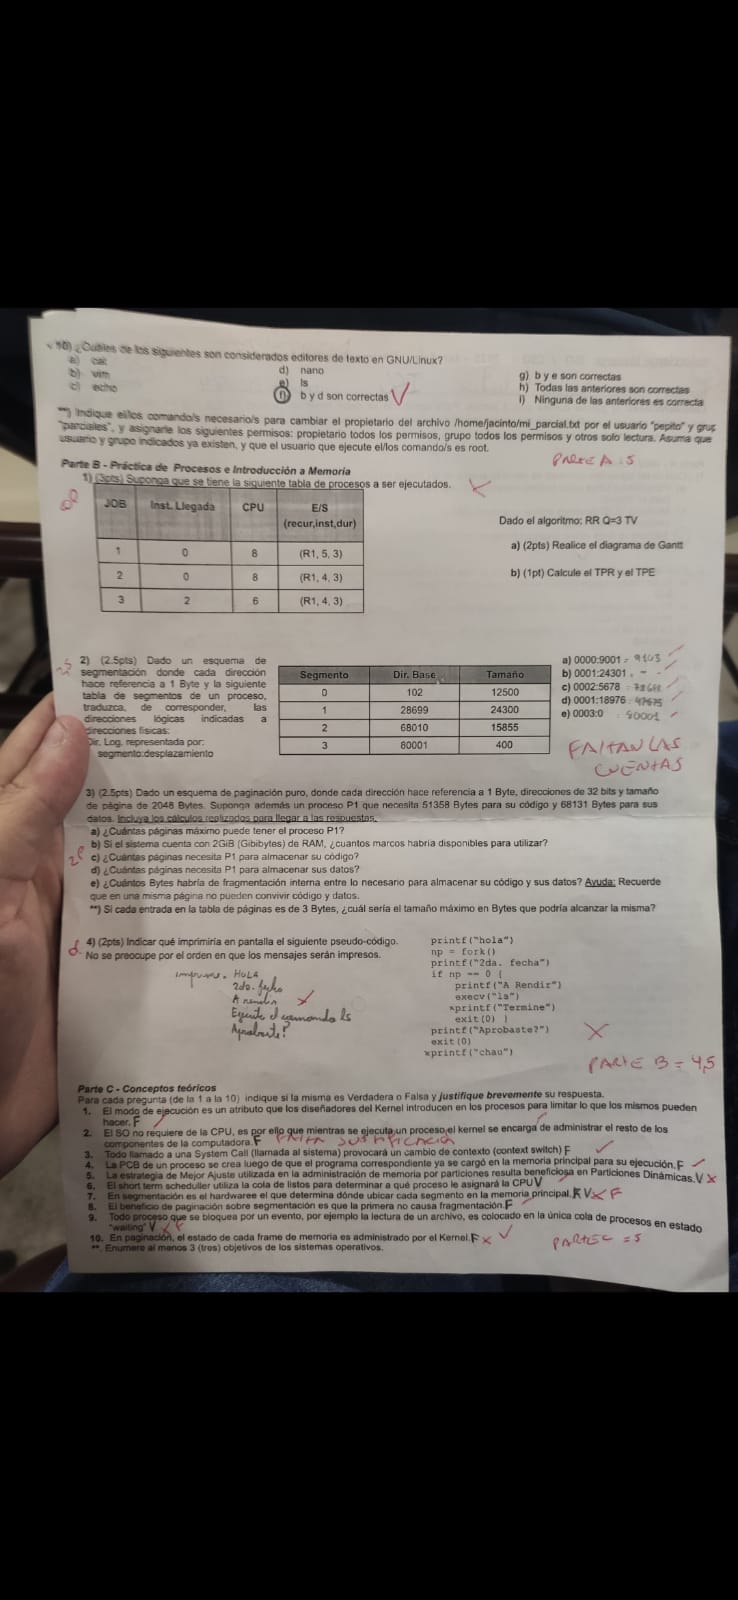 10) ¿Cuáles de los siguientes son considerados editores de texto en GNU/Linux?
a) cat
b) vim
c) echo
d) nano
e) ls
f) b y d son correctas
g) b y e son correctas
h) Todas las anteriores son correctas
i) Ninguna de las anteriores es correcta
**) Indique el/los comando/s necesario/s para cambiar el propietario del archivo /home/jacinto/mi_parcial.txt por el usuario "pepito" y grup
"parciales", y asignarle los siguientes permisos: propietario todos los permisos, grupo todos los permisos y otros solo lectura. Asuma que
usuario y grupo indicados ya existen, y que el usuario que ejecute el/los comando/s es root.
PARTE A: 5
Parte B - Práctica de Procesos e Introducción a Memoria
1) (3pts) Suponga que se tiene la siguiente tabla de procesos a ser ejecutados.
JOB Inst. Llegada CPU E/S (recur,inst,dur)
1 0 8 (R1, 5, 3)
2 0 8 (R1, 4, 3)
3 2 6 (R1, 4, 3)
Dado el algoritmo: RR Q=3 TV
a) (2pts) Realice el diagrama de Gantt
b) (1pt) Calcule el TPR y el TPE
2) (2.5pts) Dado un esquema de
segmentación donde cada dirección
hace referencia a 1 Byte y la siguiente
tabla de segmentos de un proceso,
traduzca, de corresponder, las
direcciones lógicas indicadas a
direcciones físicas:
Dir. Log. representada por:
segmento:desplazamiento
Segmento Dir. Base Tamaño
0 102 12500
1 28699 24300
2 68010 15855
3 80001 400
a) 0000:9001 = 9103
b) 0001:24301 . - -
c) 0002:5678
d) 0001:18976 : 47675
e) 0003:0
FALTAN LAS
CUENTAS
3) (2.5pts) Dado un esquema de paginación puro, donde cada dirección hace referencia a 1 Byte, direcciones de 32 bits y tamaño
de página de 2048 Bytes. Suponga además un proceso P1 que necesita 51358 Bytes para su código y 68131 Bytes para sus
datos. Incluya los cálculos realizados para llegar a las respuestas.
a) ¿Cuántas páginas máximo puede tener el proceso P1?
b) Si el sistema cuenta con 2GiB (Gibibytes) de RAM, ¿cuantos marcos habría disponibles para utilizar?
c) ¿Cuántas páginas necesita P1 para almacenar su código?
d) ¿Cuántas páginas necesita P1 para almacenar sus datos?
e) ¿Cuántos Bytes habría de fragmentación interna entre lo necesario para almacenar su código y sus datos? Ayuda: Recuerde
que en una misma página no pueden convivir código y datos.
**) Si cada entrada en la tabla de páginas es de 3 Bytes, ¿cuál sería el tamaño máximo en Bytes que podría alcanzar la misma?
4) (2pts) Indicar qué imprimiría en pantalla el siguiente pseudo-código.
No se preocupe por el orden en que los mensajes serán impresos.
imprime. HOLA
2da. fecha
A rendir
Ejecuta el comando ls
Aprobaste?
printf("hola")
np = fork()
printf("2da. fecha")
if np == 0 {
printf("A Rendir")
execv("ls")
xprintf("Termine")
exit(0) }
printf("Aprobaste?")
exit(0)
xprintf("chau")
PARTE B = 4,5
Parte C - Conceptos teóricos
Para cada pregunta (de la 1 a la 10) indique si la misma es Verdadera o Falsa y justifique brevemente su respuesta.
1. El modo de ejecución es un atributo que los diseñadores del Kernel introducen en los procesos para limitar lo que los mismos pueden
hacer. F
2. El SO no requiere de la CPU, es por ello que mientras se ejecuta un proceso el kernel se encarga de administrar el resto de los
componentes de la computadora. F FALTA JUSTIFICACION
3. Todo llamado a una System Call (llamada al sistema) provocará un cambio de contexto (context switch) F
4. La PCB de un proceso se crea luego de que el programa correspondiente ya se cargó en la memoria principal para su ejecución. F
5. La estrategia de Mejor Ajuste utilizada en la administración de memoria por particiones resulta beneficiosa en Particiones Dinámicas. V X
6. El short term scheduller utiliza la cola de listos para determinar a qué proceso le asignará la CPU V
7. En segmentación es el hardwaree el que determina dónde ubicar cada segmento en la memoria principal. F V X F
8. El beneficio de paginación sobre segmentación es que la primera no causa fragmentación. F
9. Todo proceso que se bloquea por un evento, por ejemplo la lectura de un archivo, es colocado en la única cola de procesos en estado
"waiting" V X F
10. En paginación, el estado de cada frame de memoria es administrado por el Kernel. F X
PARTE C = 5
**. Enumere al menos 3 (tres) objetivos de los sistemas operativos.